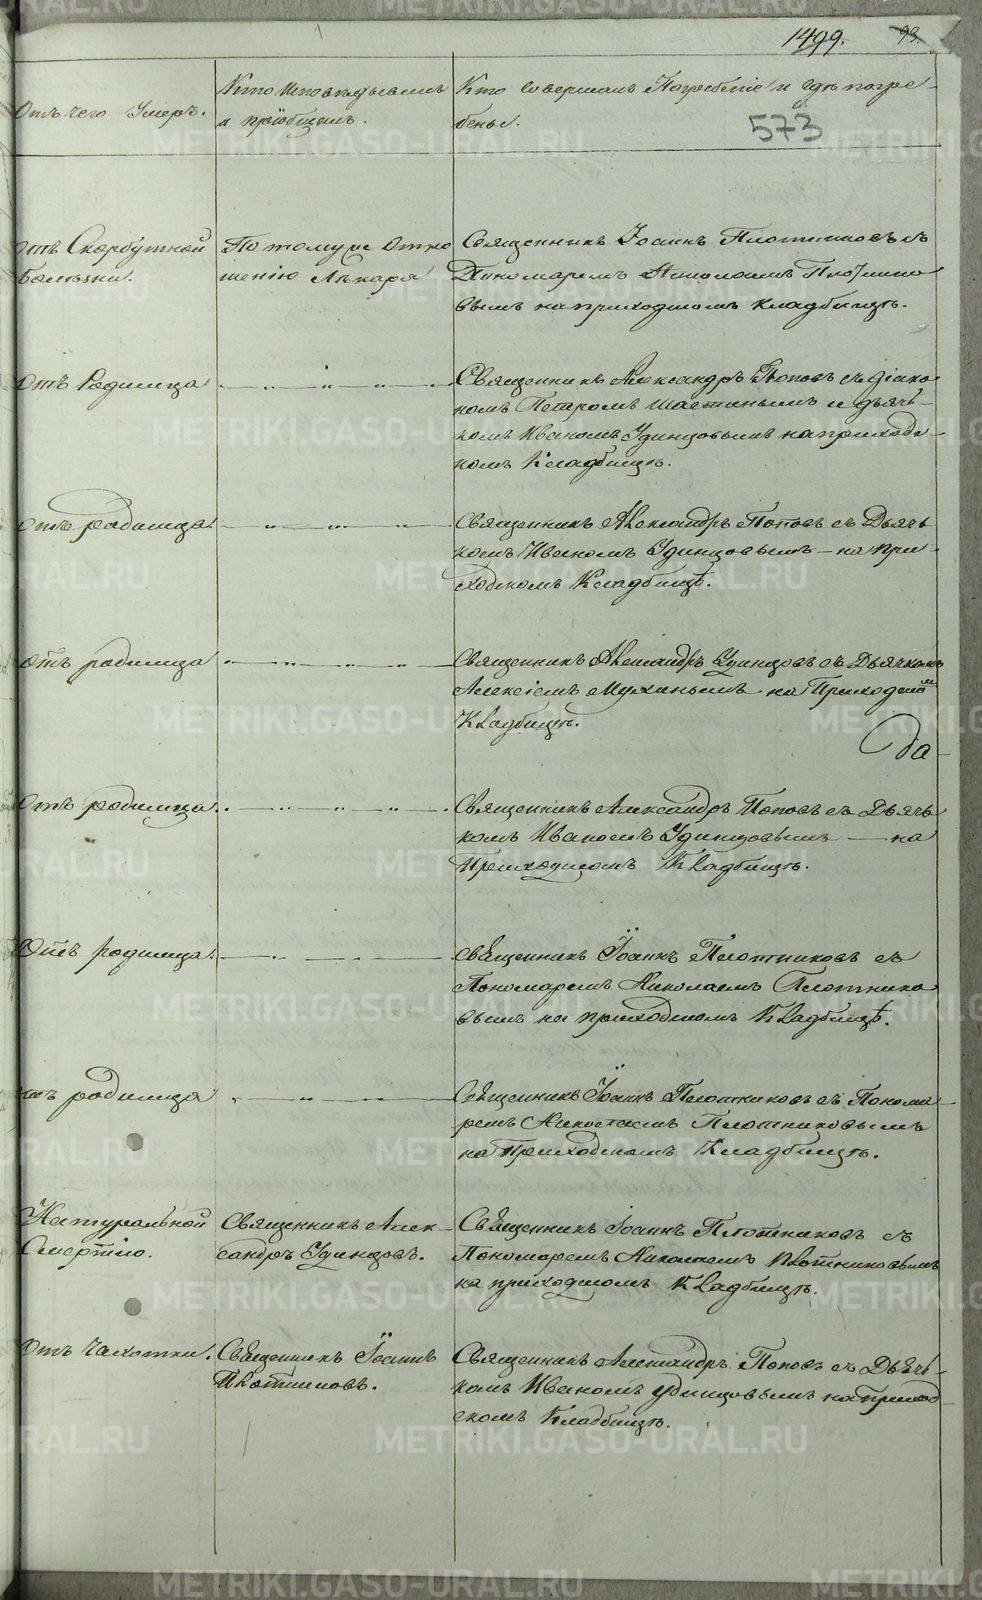 1499. 93.
Отъ чего Умеръ.
Кто Исповѣдывалъ
и прїобщалъ.
Кто совершалъ Погребеніе и гдѣ погре-
бены.
573
отъ Скорбутной
Болѣзни.
По тому же отно
шенію Лѣкаря
Священникъ Іоаннъ Плотниковъ съ
Пономаремъ Николаемъ Плотнико
вымъ на приходскомъ кладбищѣ.
отъ Родимца
Священникъ Александръ Поповъ съ діако
номъ Петромъ и дьяч-
комъ Иваномъ Удинцовымъ на приходс-
комъ Кладбищѣ.
отъ родимца.
Священникъ Александръ Поповъ съ Дьячь
комъ Иваномъ Удинцовымъ — на при-
ходскомъ Кладбищѣ.
отъ родимца
Священникъ Александръ Удинцовъ съ Дьячкомъ
Алексіемъ Мухинымъ на Приходскомъ
Кладбищѣ.
да-
Отъ родимца.
Священникъ Александръ Поповъ съ Дьячь
комъ Иваномъ Удинцовымъ — на
Приходскомъ Кладбищѣ.
Отъ родимца.
священникъ Іоаннъ Плотниковъ съ
Пономаремъ Николаемъ Плотнико
вымъ на приходскомъ Кладбищѣ.
отъ родимца
Священникъ Іоаннъ Плотниковъ съ Понома
ремъ Николаемъ Плотниковымъ
на Приходскомъ Кладбищѣ.
Натуральной
Смертію.
Священникъ Алек-
сандръ Удинцовъ.
Священникъ Іоаннъ Плотниковъ съ
Пономаремъ Николаемъ Плотниковымъ
на приходскомъ Кладбищѣ.
Отъ Чахотки.
Священникъ Іоаннъ
Плотниковъ.
Священникъ Александръ Поповъ съ Дьячь-
комъ Иваномъ Удинцовымъ на приход
скомъ Кладбищѣ.
METRIKI.GASO-URAL.RU